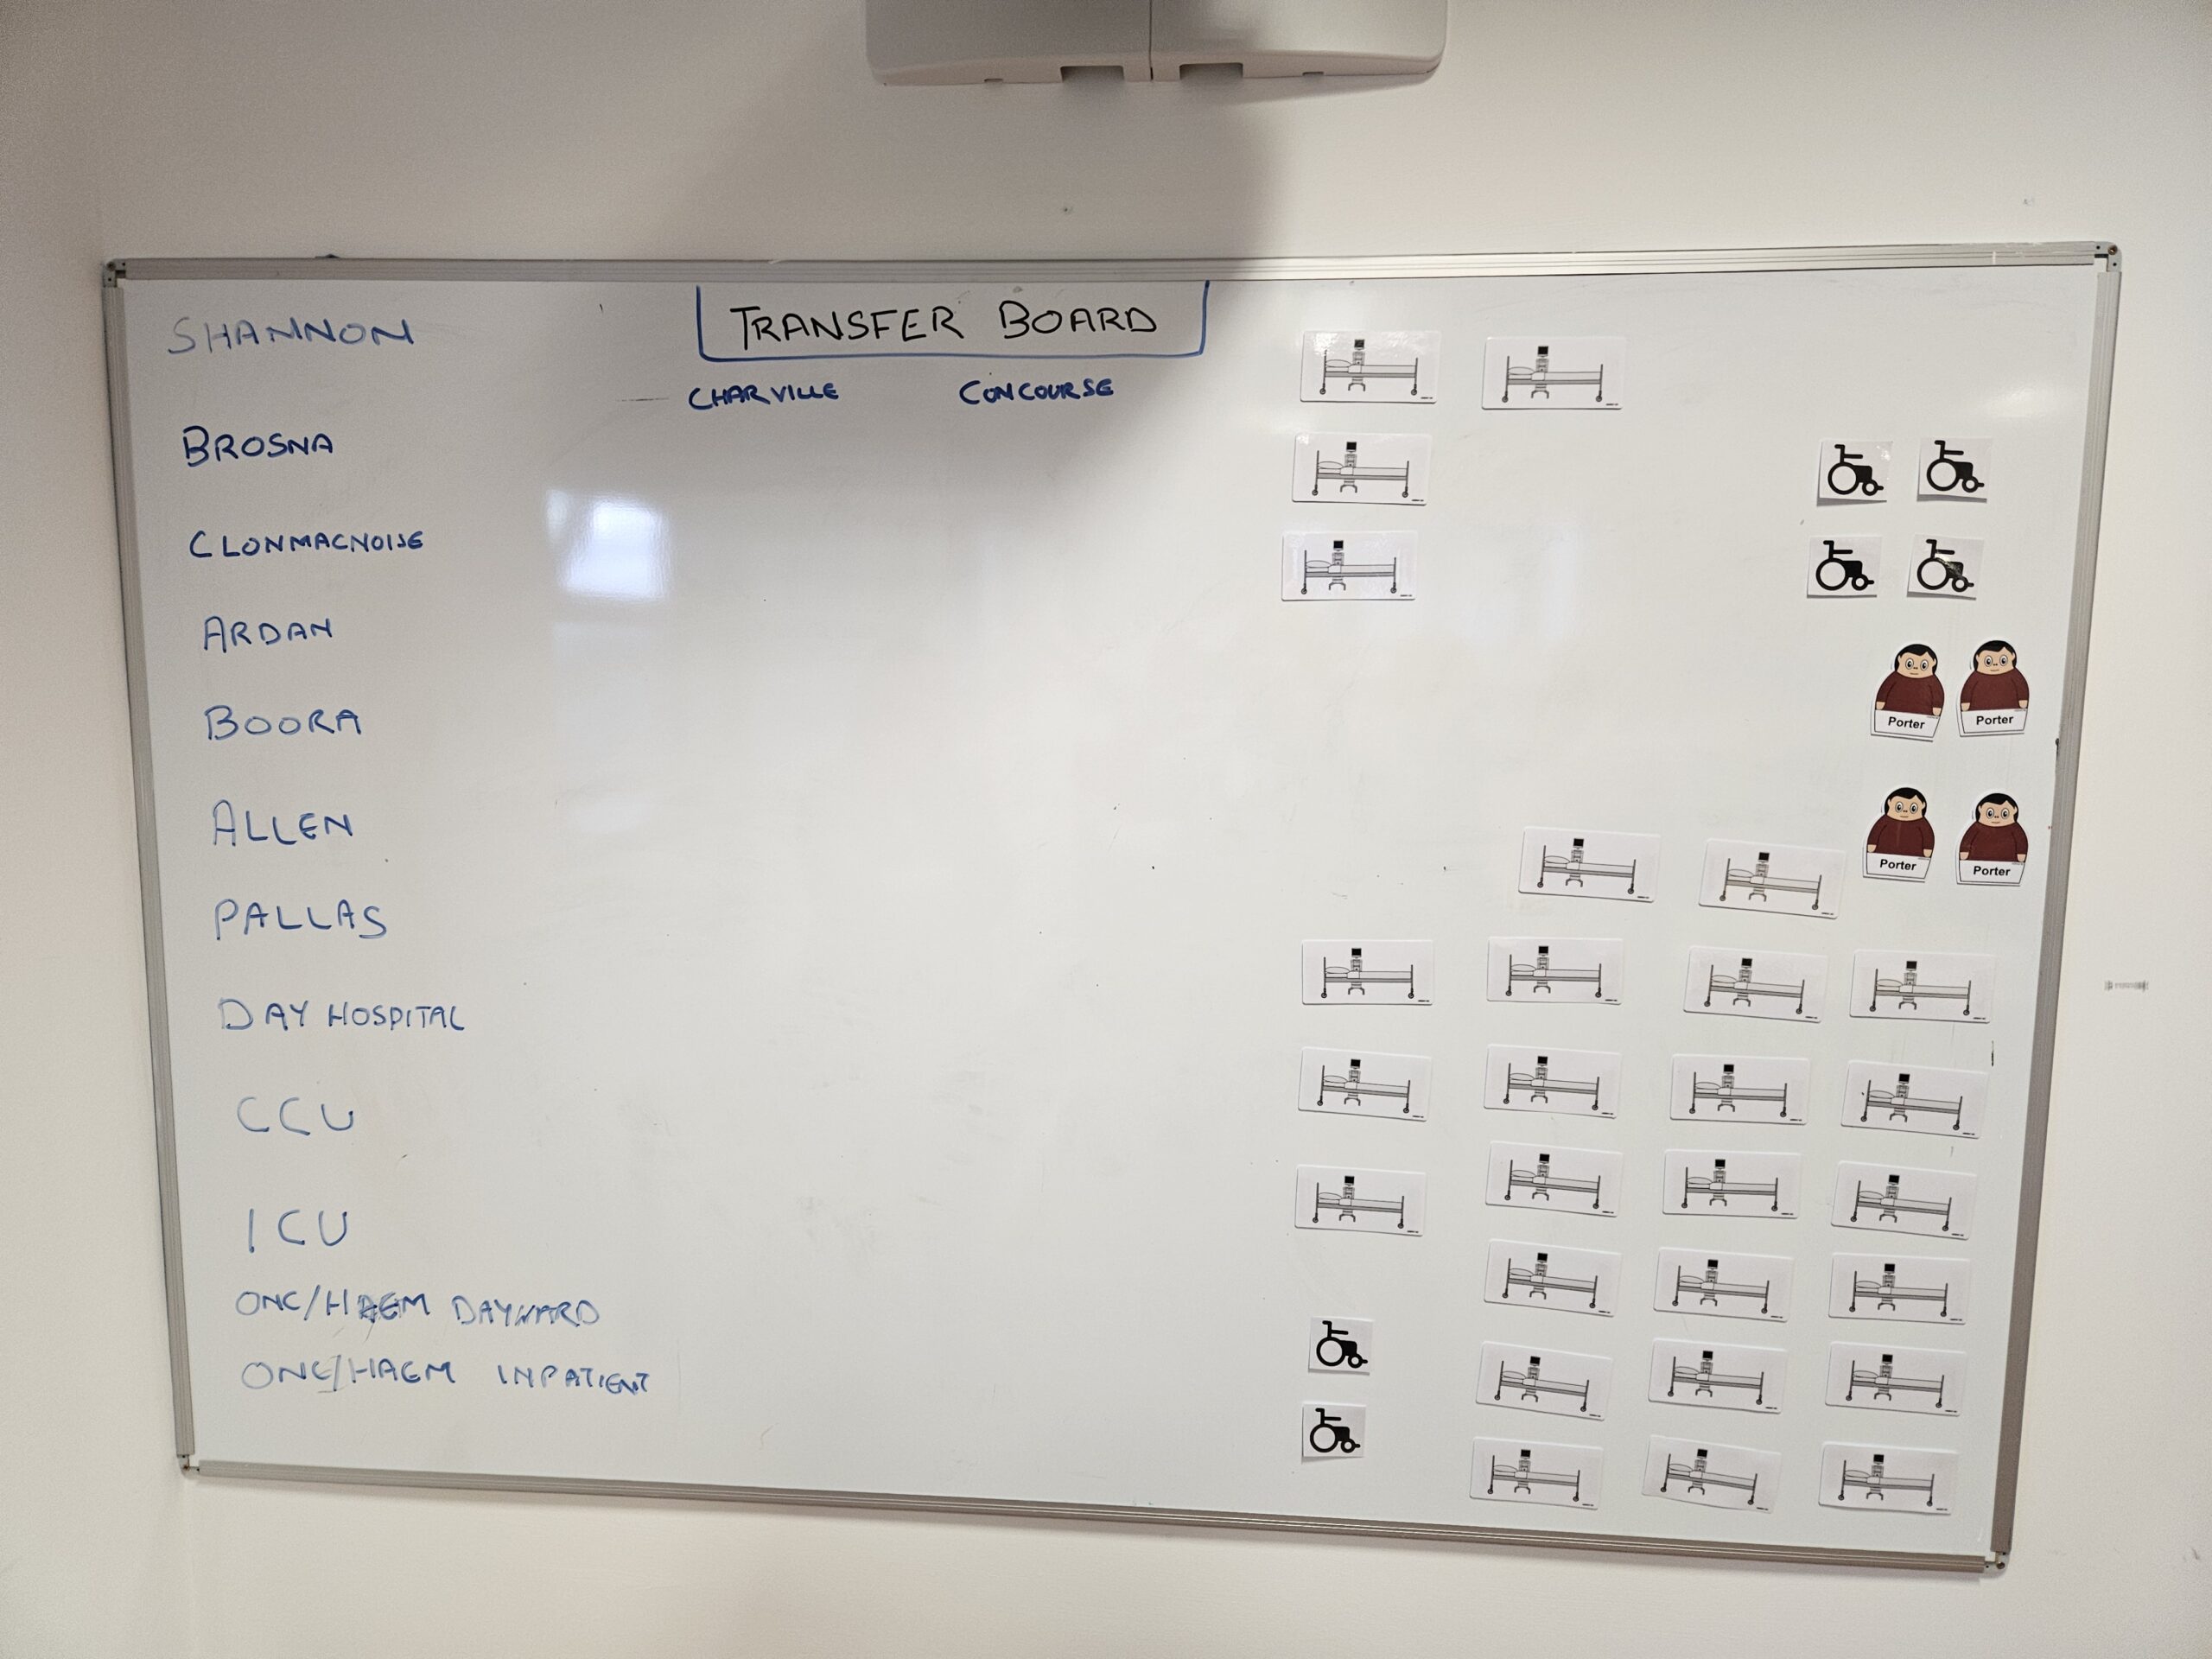 TRANSFER BOARD
CHARVILLE CONCOURSE
SHANNON
BROSNA
CLONMACNOISE
ARDAN
BOORA
ALLEN
PALLAS
DAY HOSPITAL
CCU
ICU
ONC/HAEM DAYWARD
ONC/HAEM INPATIENT
Porter Porter
Porter Porter